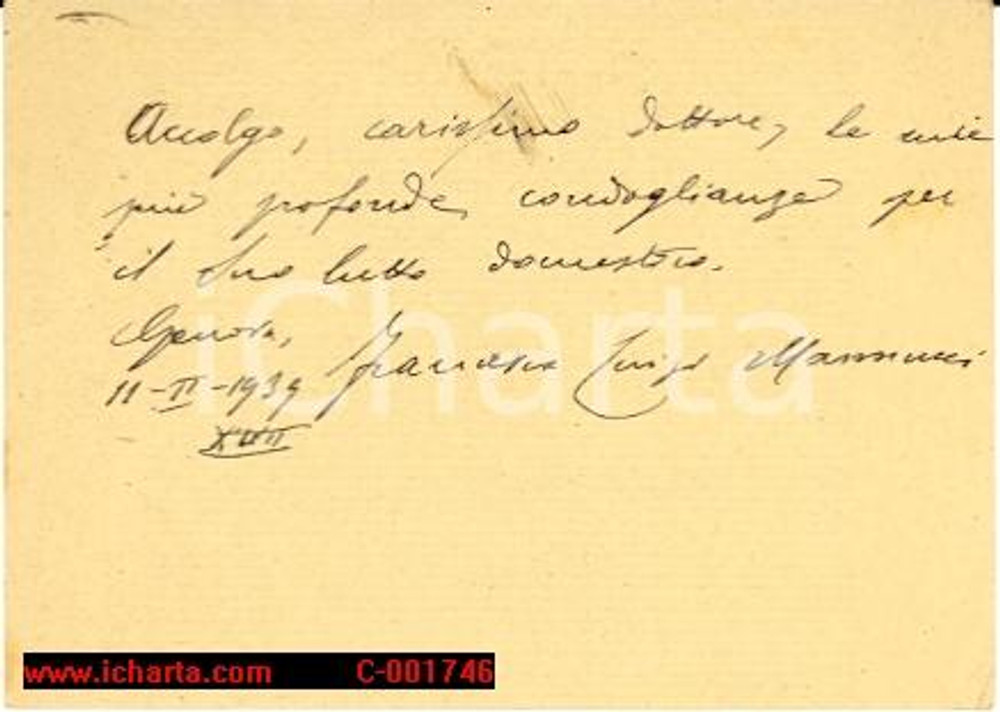 Accolga, carissimo dottore, le mie
più profonde condoglianze per
il suo lutto domestico.
Genova,
11-II-1939 Francesco Luigi Mannucci
XVII
iCharta
www.icharta.com C-001746